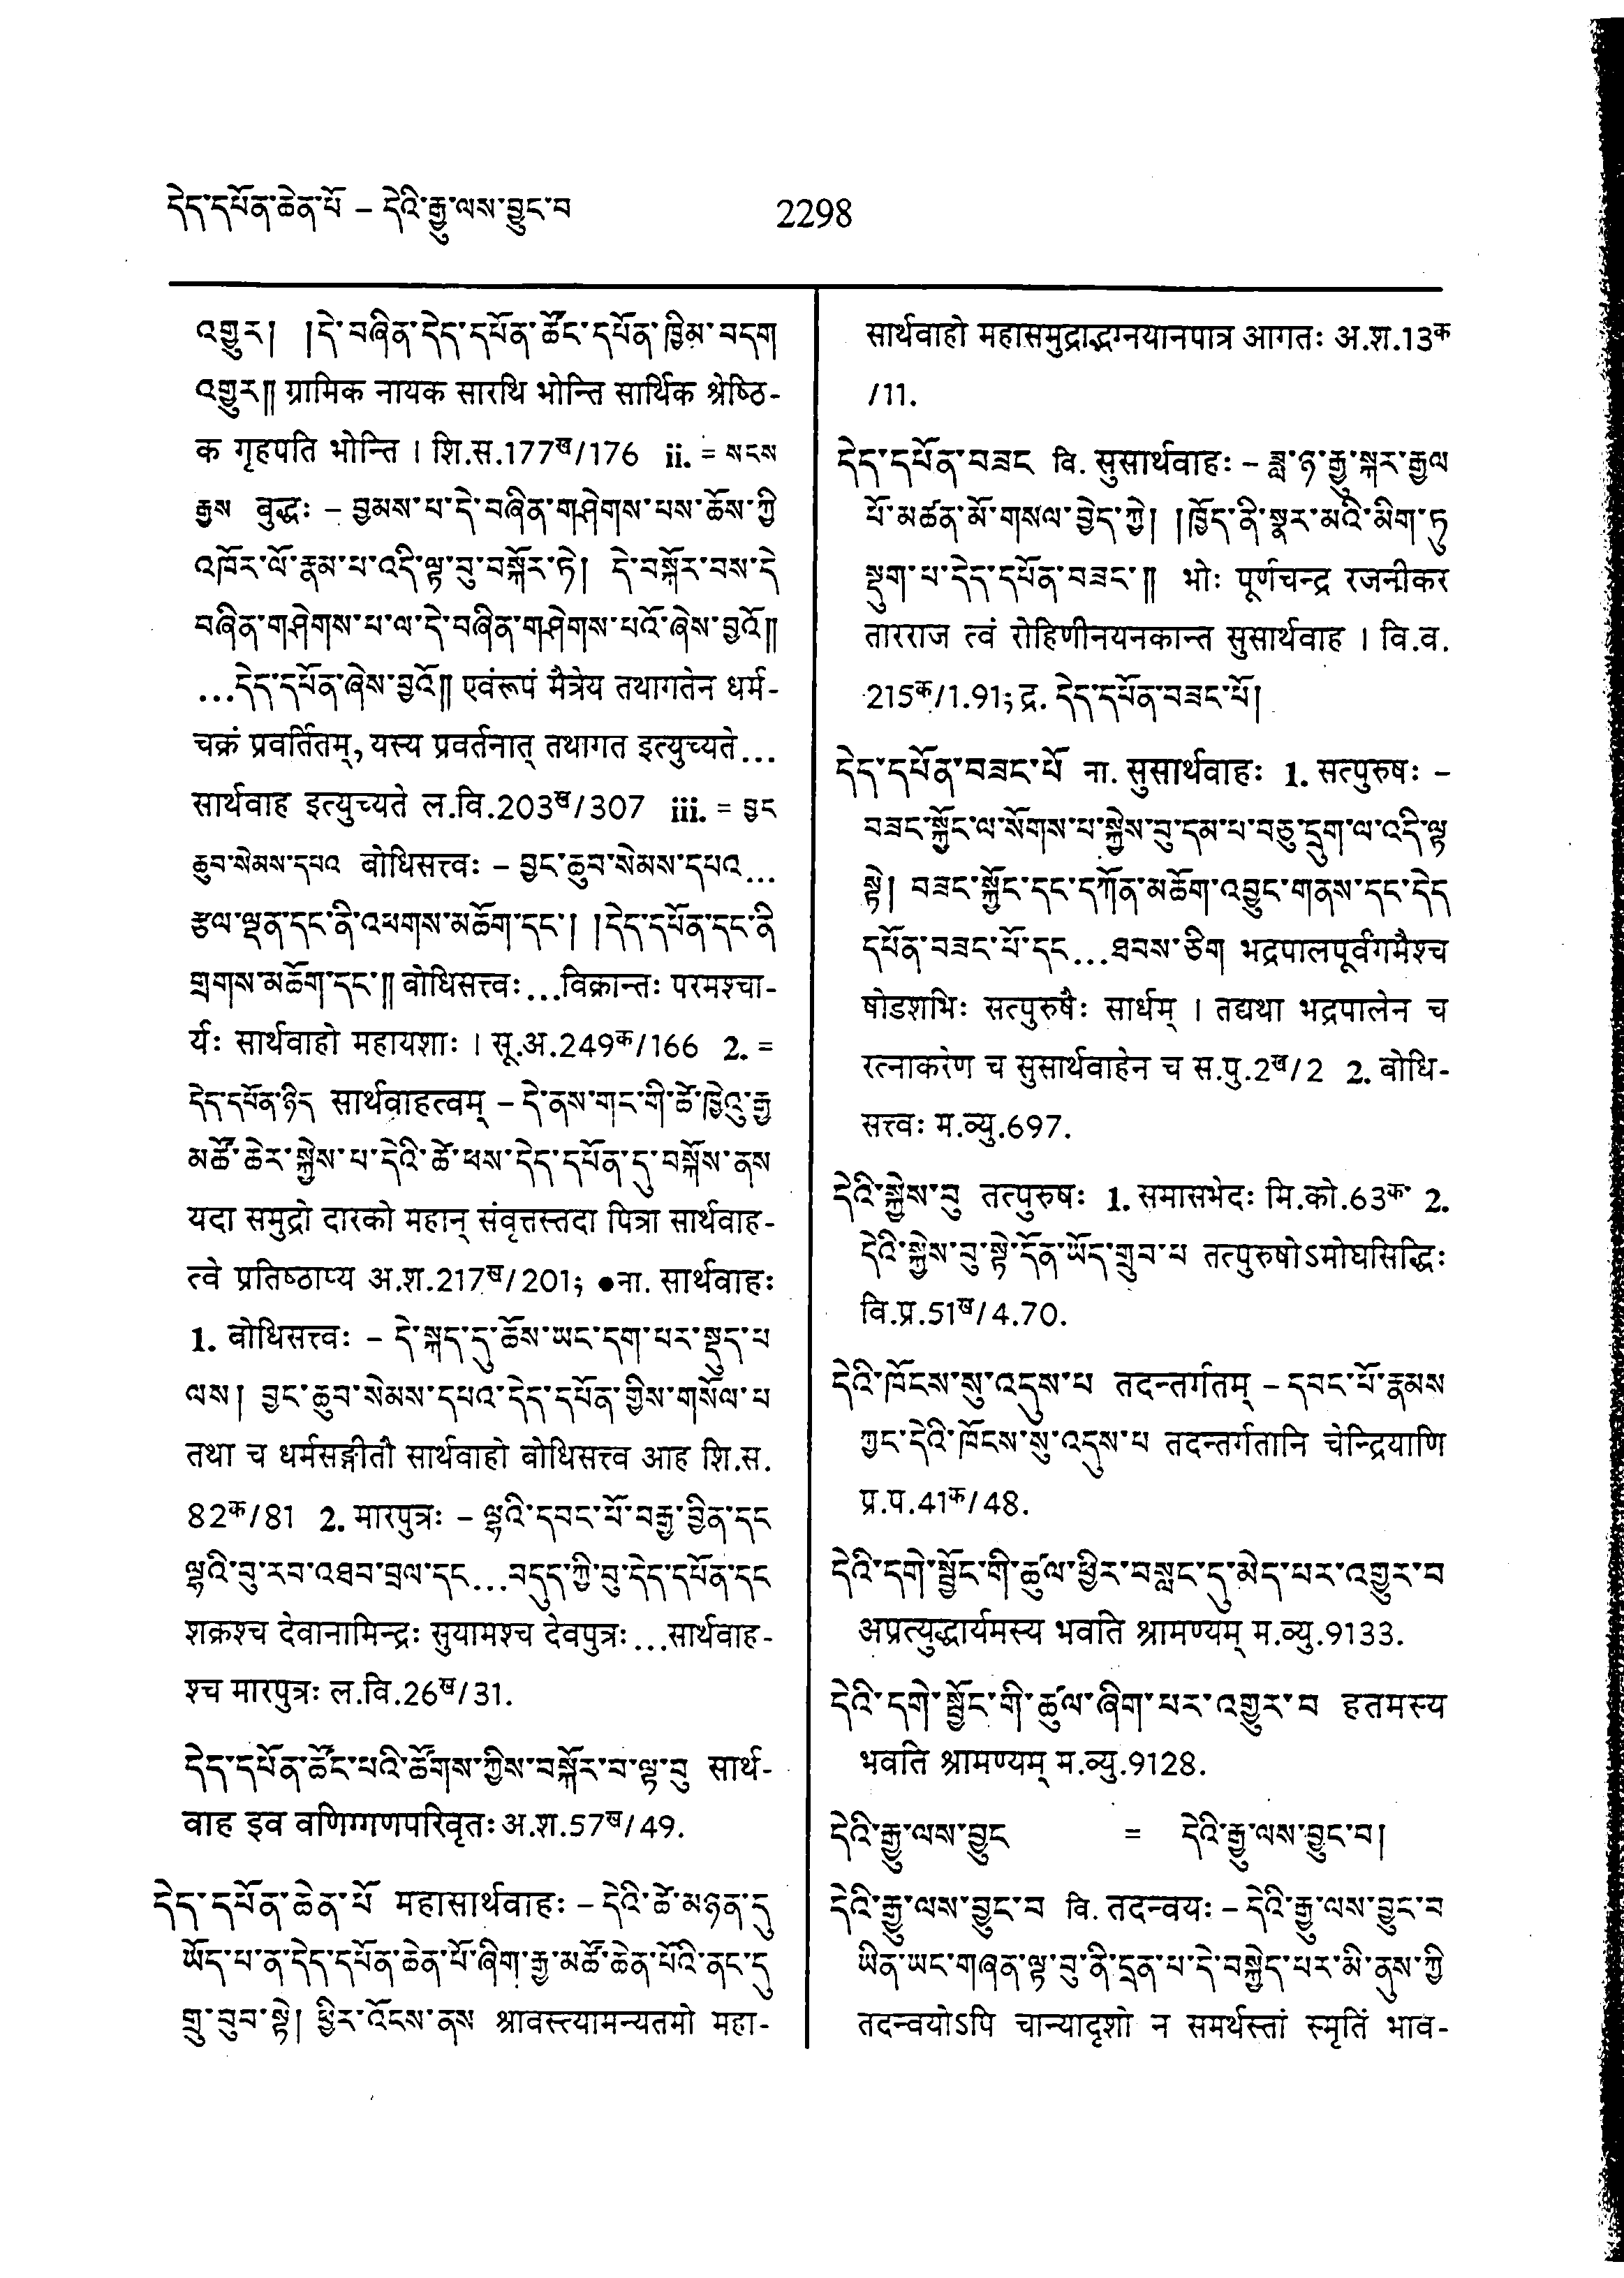 དེད་དཔོན་ཆེན་པོ – དེའི་རྒྱུ་ལས་བྱུང་བ
2298
འགྱུར། །དེ་བཞིན་དེད་དཔོན་ཚོང་དཔོན་ཁྱིམ་བདག
འགྱུར༎ ग्रामिक नायक सारथि भोन्ति सार्थिक श्रेष्ठि-
क गृहपति भोन्ति । शि.स.177ख/176 ii. = སངས
རྒྱས बुद्धः – བྱམས་པ་དེ་བཞིན་གཤེགས་པས་ཆོས་ཀྱི
འཁོར་ལོ་རྣམ་པ་འདི་ལྟ་བུ་བསྐོར་ཏེ། དེ་བསྐོར་བས་དེ
བཞིན་གཤེགས་པ་ལ་དེ་བཞིན་གཤེགས་པའོ་ཞེས་བྱའོ༎
...དེད་དཔོན་ཞེས་བྱའོ༎ एवंरूपं मैत्रेय तथागतेन धर्म-
चक्रं प्रवर्तितम्, यस्य प्रवर्तनात् तथागत इत्युच्यते...
सार्थवाह इत्युच्यते ल.वि.203ख/307 iii. = བྱང
ཆུབ་སེམས་དཔའ बोधिसत्त्वः – བྱང་ཆུབ་སེམས་དཔའ...
རྩལ་ལྡན་དང་ནི་འཕགས་མཆོག་དང་། །དེད་དཔོན་དང་ནི
གྲགས་མཆོག་དང་༎ बोधिसत्त्वः...विक्रान्तः परमश्चा-
र्यः सार्थवाहो महायशाः । सू.अ.249क/166 2. =
དེད་དཔོན་ཉིད सार्थवाहत्वम् – དེ་ནས་གང་གི་ཚེ་ཁྱེའུ་རྒྱ
མཚོ་ཆེར་སྐྱེས་པ་དེའི་ཚེ་ཕས་དེད་དཔོན་དུ་བསྐོས་ནས
यदा समुद्रो दारको महान् संवृत्तस्तदा पित्रा सार्थवाह-
त्वे प्रतिष्ठाप्य अ.श.217ख/201; ●ना. सार्थवाहः
1. बोधिसत्त्वः – དེ་སྐད་དུ་ཆོས་ཡང་དག་པར་སྡུད་པ
ལས། བྱང་ཆུབ་སེམས་དཔའ་དེད་དཔོན་གྱིས་གསོལ་པ
तथा च धर्मसङ्गीतौ सार्थवाहो बोधिसत्त्व आह शि.स.
82क/81 2. मारपुत्रः – ལྷའི་དབང་པོ་བརྒྱ་བྱིན་དང
ལྷའི་བུ་རབ་འཐབ་བྲལ་དང...བདུད་ཀྱི་བུ་དེད་དཔོན་དང
शक्रश्च देवानामिन्द्रः सुयामश्च देवपुत्रः...सार्थवाह-
श्च मारपुत्रः ल.वि.26ख/31.
དེད་དཔོན་ཚོང་པའི་ཚོགས་ཀྱིས་བསྐོར་བ་ལྟ་བུ सार्थ-
वाह इव वणिग्गणपरिवृतः अ.श.57ख/49.
དེད་དཔོན་ཆེན་པོ महासार्थवाहः – དེའི་ཚེ་མཉན་དུ
ཡོད་པ་ན་དེད་དཔོན་ཆེན་པོ་ཞིག་རྒྱ་མཚོ་ཆེན་པོའི་ནང་དུ
གྲུ་བུབ་སྟེ། ཕྱིར་འོངས་ནས श्रावस्त्यामन्यतमो महा-
सार्थवाहो महासमुद्राद्भग्नयानपात्र आगतः अ.श.13क
/11.
དེད་དཔོན་བཟང वि. सुसार्थवाहः – ཟླ་ཉ་རྒྱུ་སྐར་རྒྱལ
པོ་མཚན་མོ་གསལ་བྱེད་ཀྱེ། །ཁྱོད་ནི་སྣར་མའི་མིག་ཏུ
སྡུག་པ་དེད་དཔོན་བཟང་༎ भोः पूर्णचन्द्र रजनीकर
तारराज त्वं रोहिणीनयनकान्त सुसार्थवाह । वि.व.
215क/1.91; द्र. དེད་དཔོན་བཟང་པོ།
དེད་དཔོན་བཟང་པོ ना. सुसार्थवाहः 1. सत्पुरुषः –
བཟང་སྐྱོང་ལ་སོགས་པ་སྐྱེས་བུ་དམ་པ་བཅུ་དྲུག་ལ་འདི་ལྟ
སྟེ། བཟང་སྐྱོང་དང་དཀོན་མཆོག་འབྱུང་གནས་དང་དེད
དཔོན་བཟང་པོ་དང...ཐབས་ཅིག भद्रपालपूर्वंगमैश्च
षोडशभिः सत्पुरुषैः सार्धम् । तद्यथा भद्रपालेन च
रत्नाकरेण च सुसार्थवाहेन च स.पु.2ख/2 2. बोधि-
सत्त्वः म.व्यु.697.
དེའི་སྐྱེས་བུ तत्पुरुषः 1. समासभेदः मि.को.63क 2.
དེའི་སྐྱེས་བུ་སྟེ་དོན་ཡོད་གྲུབ་པ तत्पुरुषोऽमोघसिद्धिः
वि.प्र.51ख/4.70.
དེའི་ཁོངས་སུ་འདུས་པ तदन्तर्गतम् – དབང་པོ་རྣམས
ཀྱང་དེའི་ཁོངས་སུ་འདུས་པ तदन्तर्गतानि चेन्द्रियाणि
प्र.प.41क/48.
དེའི་དགེ་སྦྱོང་གི་ཚུལ་ཕྱིར་བསླང་དུ་མེད་པར་འགྱུར་བ
अप्रत्युद्धार्यमस्य भवति श्रामण्यम् म.व्यु.9133.
དེའི་དགེ་སྦྱོང་གི་ཚུལ་ཞིག་པར་འགྱུར་བ हतमस्य
भवति श्रामण्यम् म.व्यु.9128.
དེའི་རྒྱུ་ལས་བྱུང = དེའི་རྒྱུ་ལས་བྱུང་བ།
དེའི་རྒྱུ་ལས་བྱུང་བ वि. तदन्वयः – དེའི་རྒྱུ་ལས་བྱུང་བ
ཡིན་ཡང་གཞན་ལྟ་བུ་ནི་དྲན་པ་དེ་བསྐྱེད་པར་མི་ནུས་ཀྱི
तदन्वयोऽपि चान्यादृशो न समर्थस्तां स्मृतिं भाव-